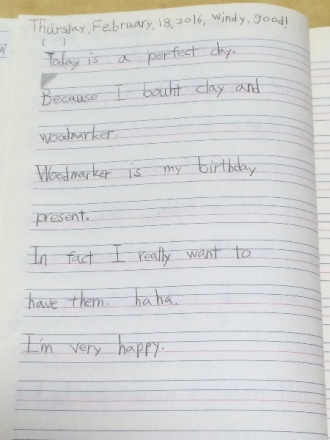 Thursday, February, 18, 2016, windy, good!
( )
Today is a perfect day.
Because I bouht clay and
woodmarker.
Woodmarker is my birthday
present.
In fact I really want to
have them. haha.
I'm very happy.